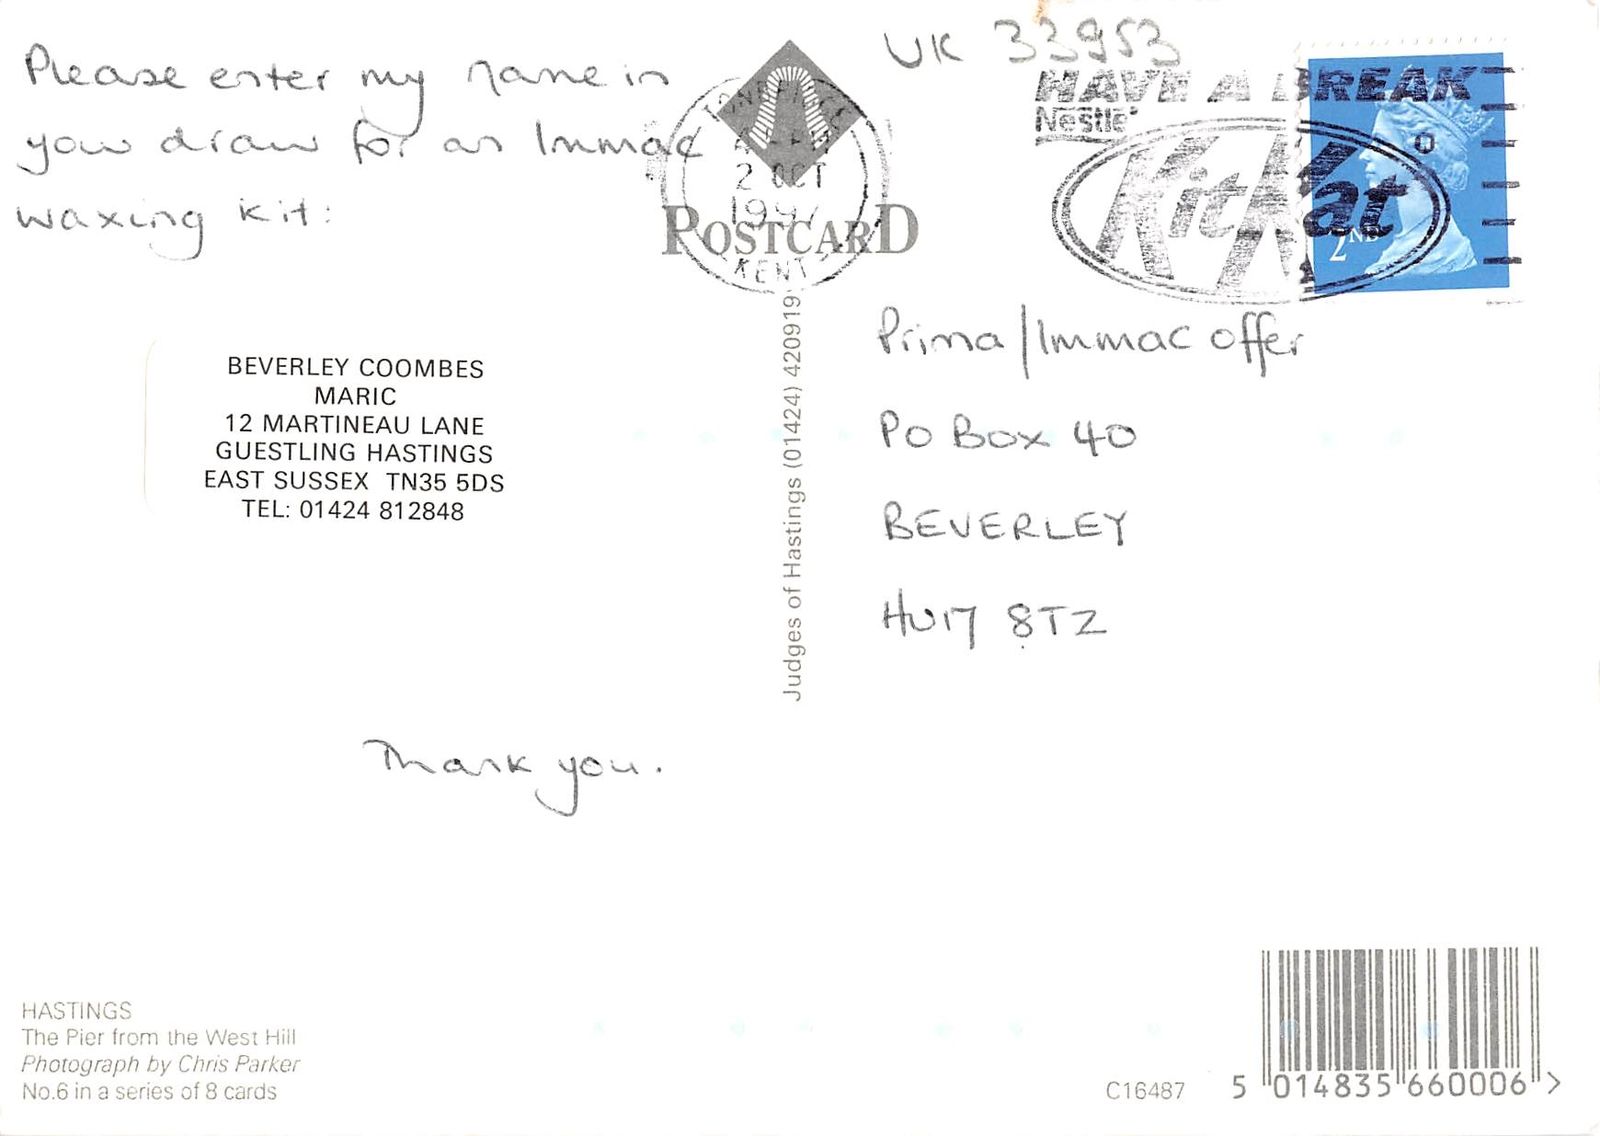 Please enter my name in
your draw for an Immac
waxing kit:
BEVERLEY COOMBES
MARIC
12 MARTINEAU LANE
GUESTLING HASTINGS
EAST SUSSEX TN35 5DS
TEL: 01424 812848
Thank you.
HASTINGS
The Pier from the West Hill
Photograph by Chris Parker
No.6 in a series of 8 cards
2 OCT
KENT
POSTCARD
Judges of Hastings (01424) 420919
UK 33953
HAVE A BREAK
Nestlé
KitKat
2ND
Prima/Immac offer
PO Box 40
BEVERLEY
HU17 8TZ
C16487
5 014835 660006 >